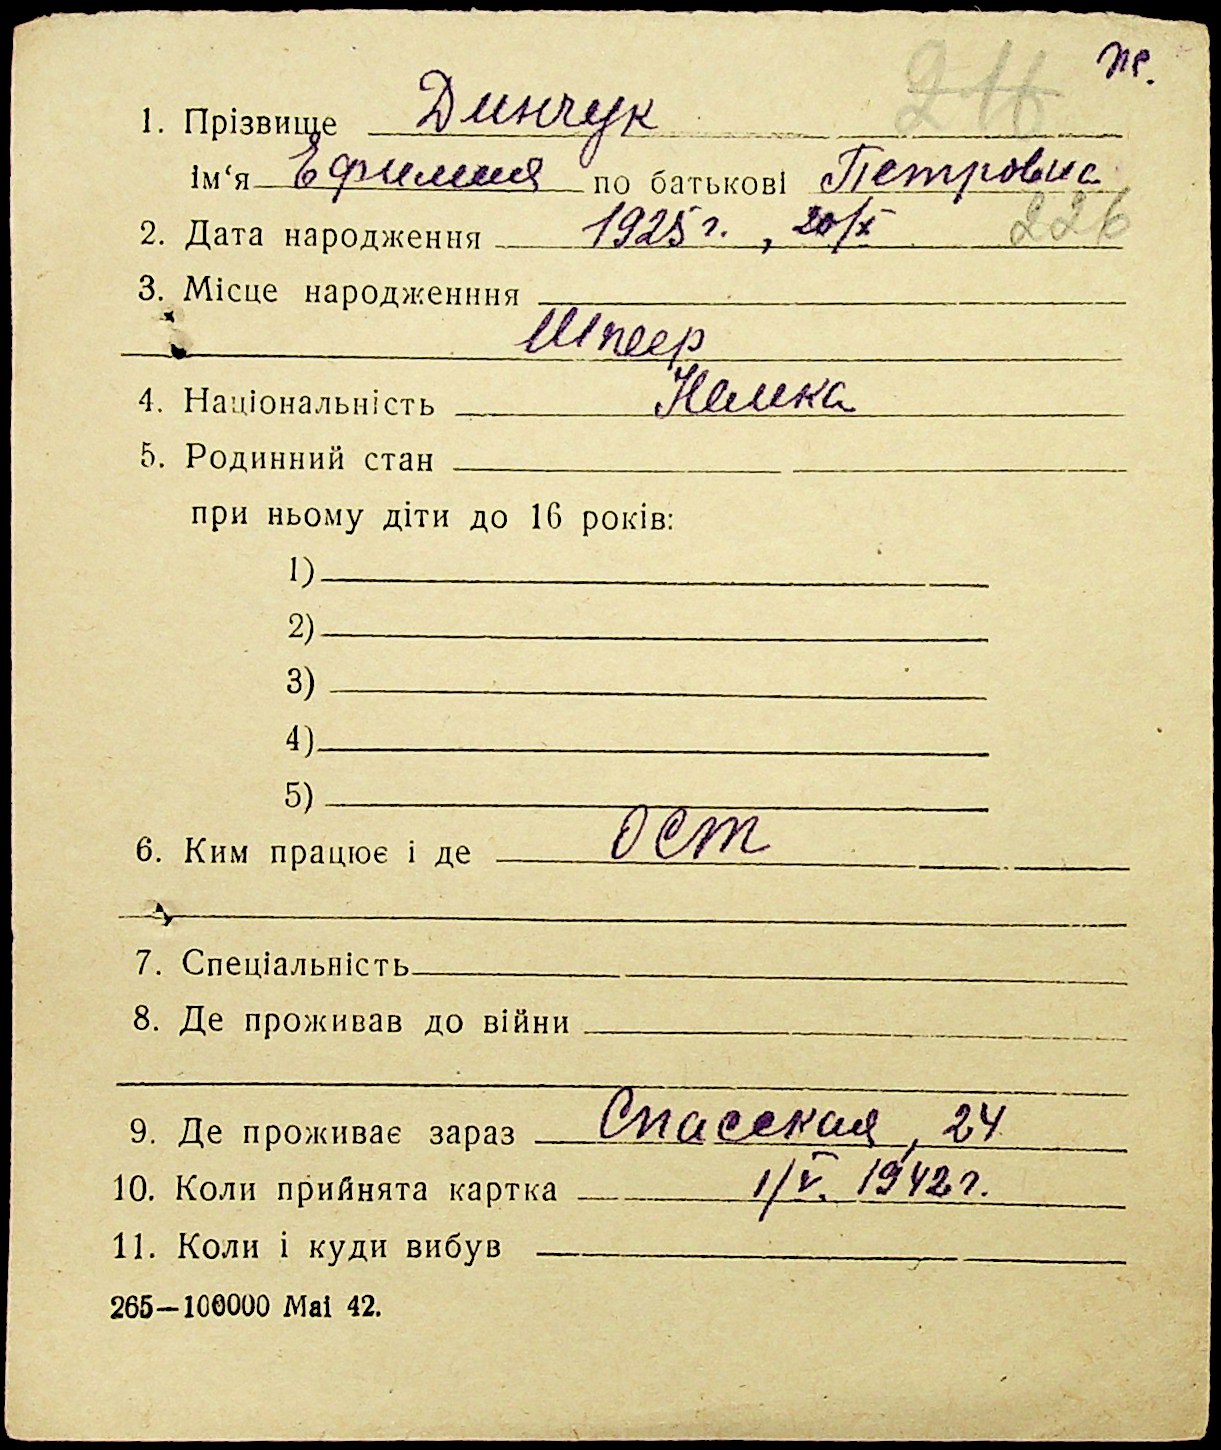 пр.
216
1. Прізвище Динчук
ім‘я Ефимия по батькові Петровна
226
2. Дата народження 1925 г., 20/X
3. Місце народженння
Шпеер
4. Національність Немка
5. Родинний стан
при ньому діти до 16 років:
1)
2)
3)
4)
5)
6. Ким працює і де Ост
7. Спеціальність
8. Де проживав до війни
9. Де проживає зараз Спасская, 24
10. Коли прийнята картка 1/V. 1942 г.
11. Коли і куди вибув
265—100000 Mai 42.